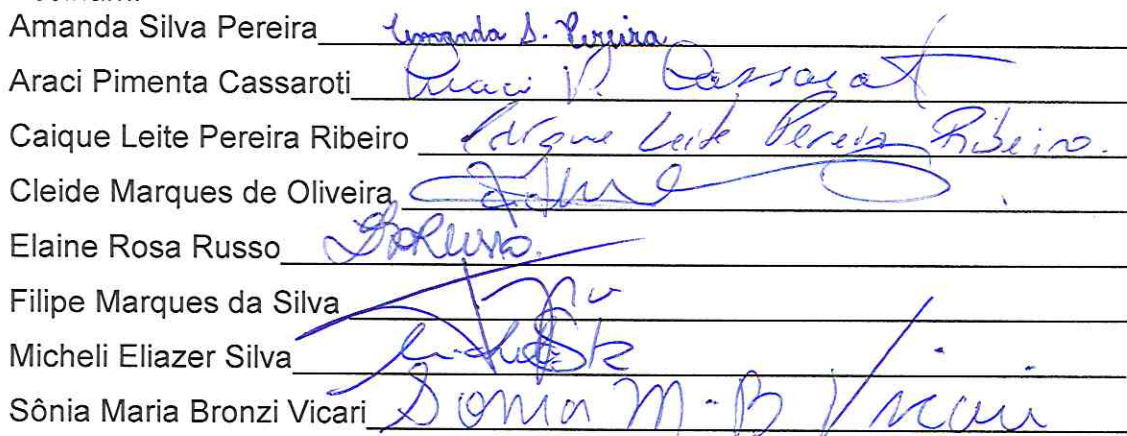 Amanda Silva Pereira Amanda S. Pereira
Araci Pimenta Cassaroti Araci P. Cassarot
Caique Leite Pereira Ribeiro Caique Leite Pereira Ribeiro.
Cleide Marques de Oliveira
Elaine Rosa Russo
Filipe Marques da Silva
Micheli Eliazer Silva
Sônia Maria Bronzi Vicari Sonia M. B Vicari